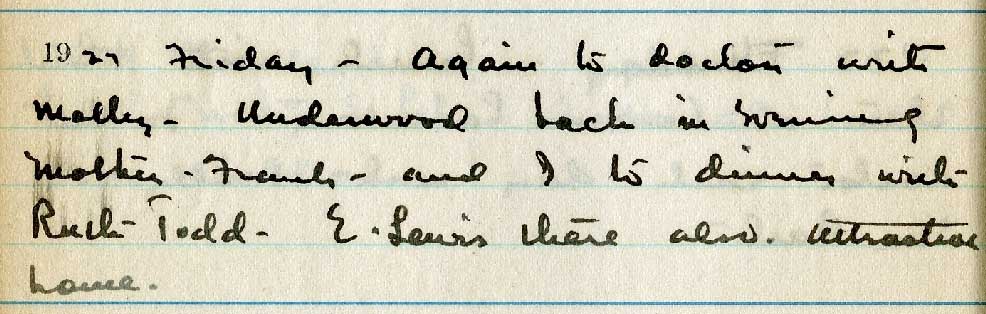 1927 Friday - Again to doctors with
Mother - Underwood back in evening
Mother - Frank - and I to dinner with
Ruth Todd - E. Lewis there also. Attractive
home.